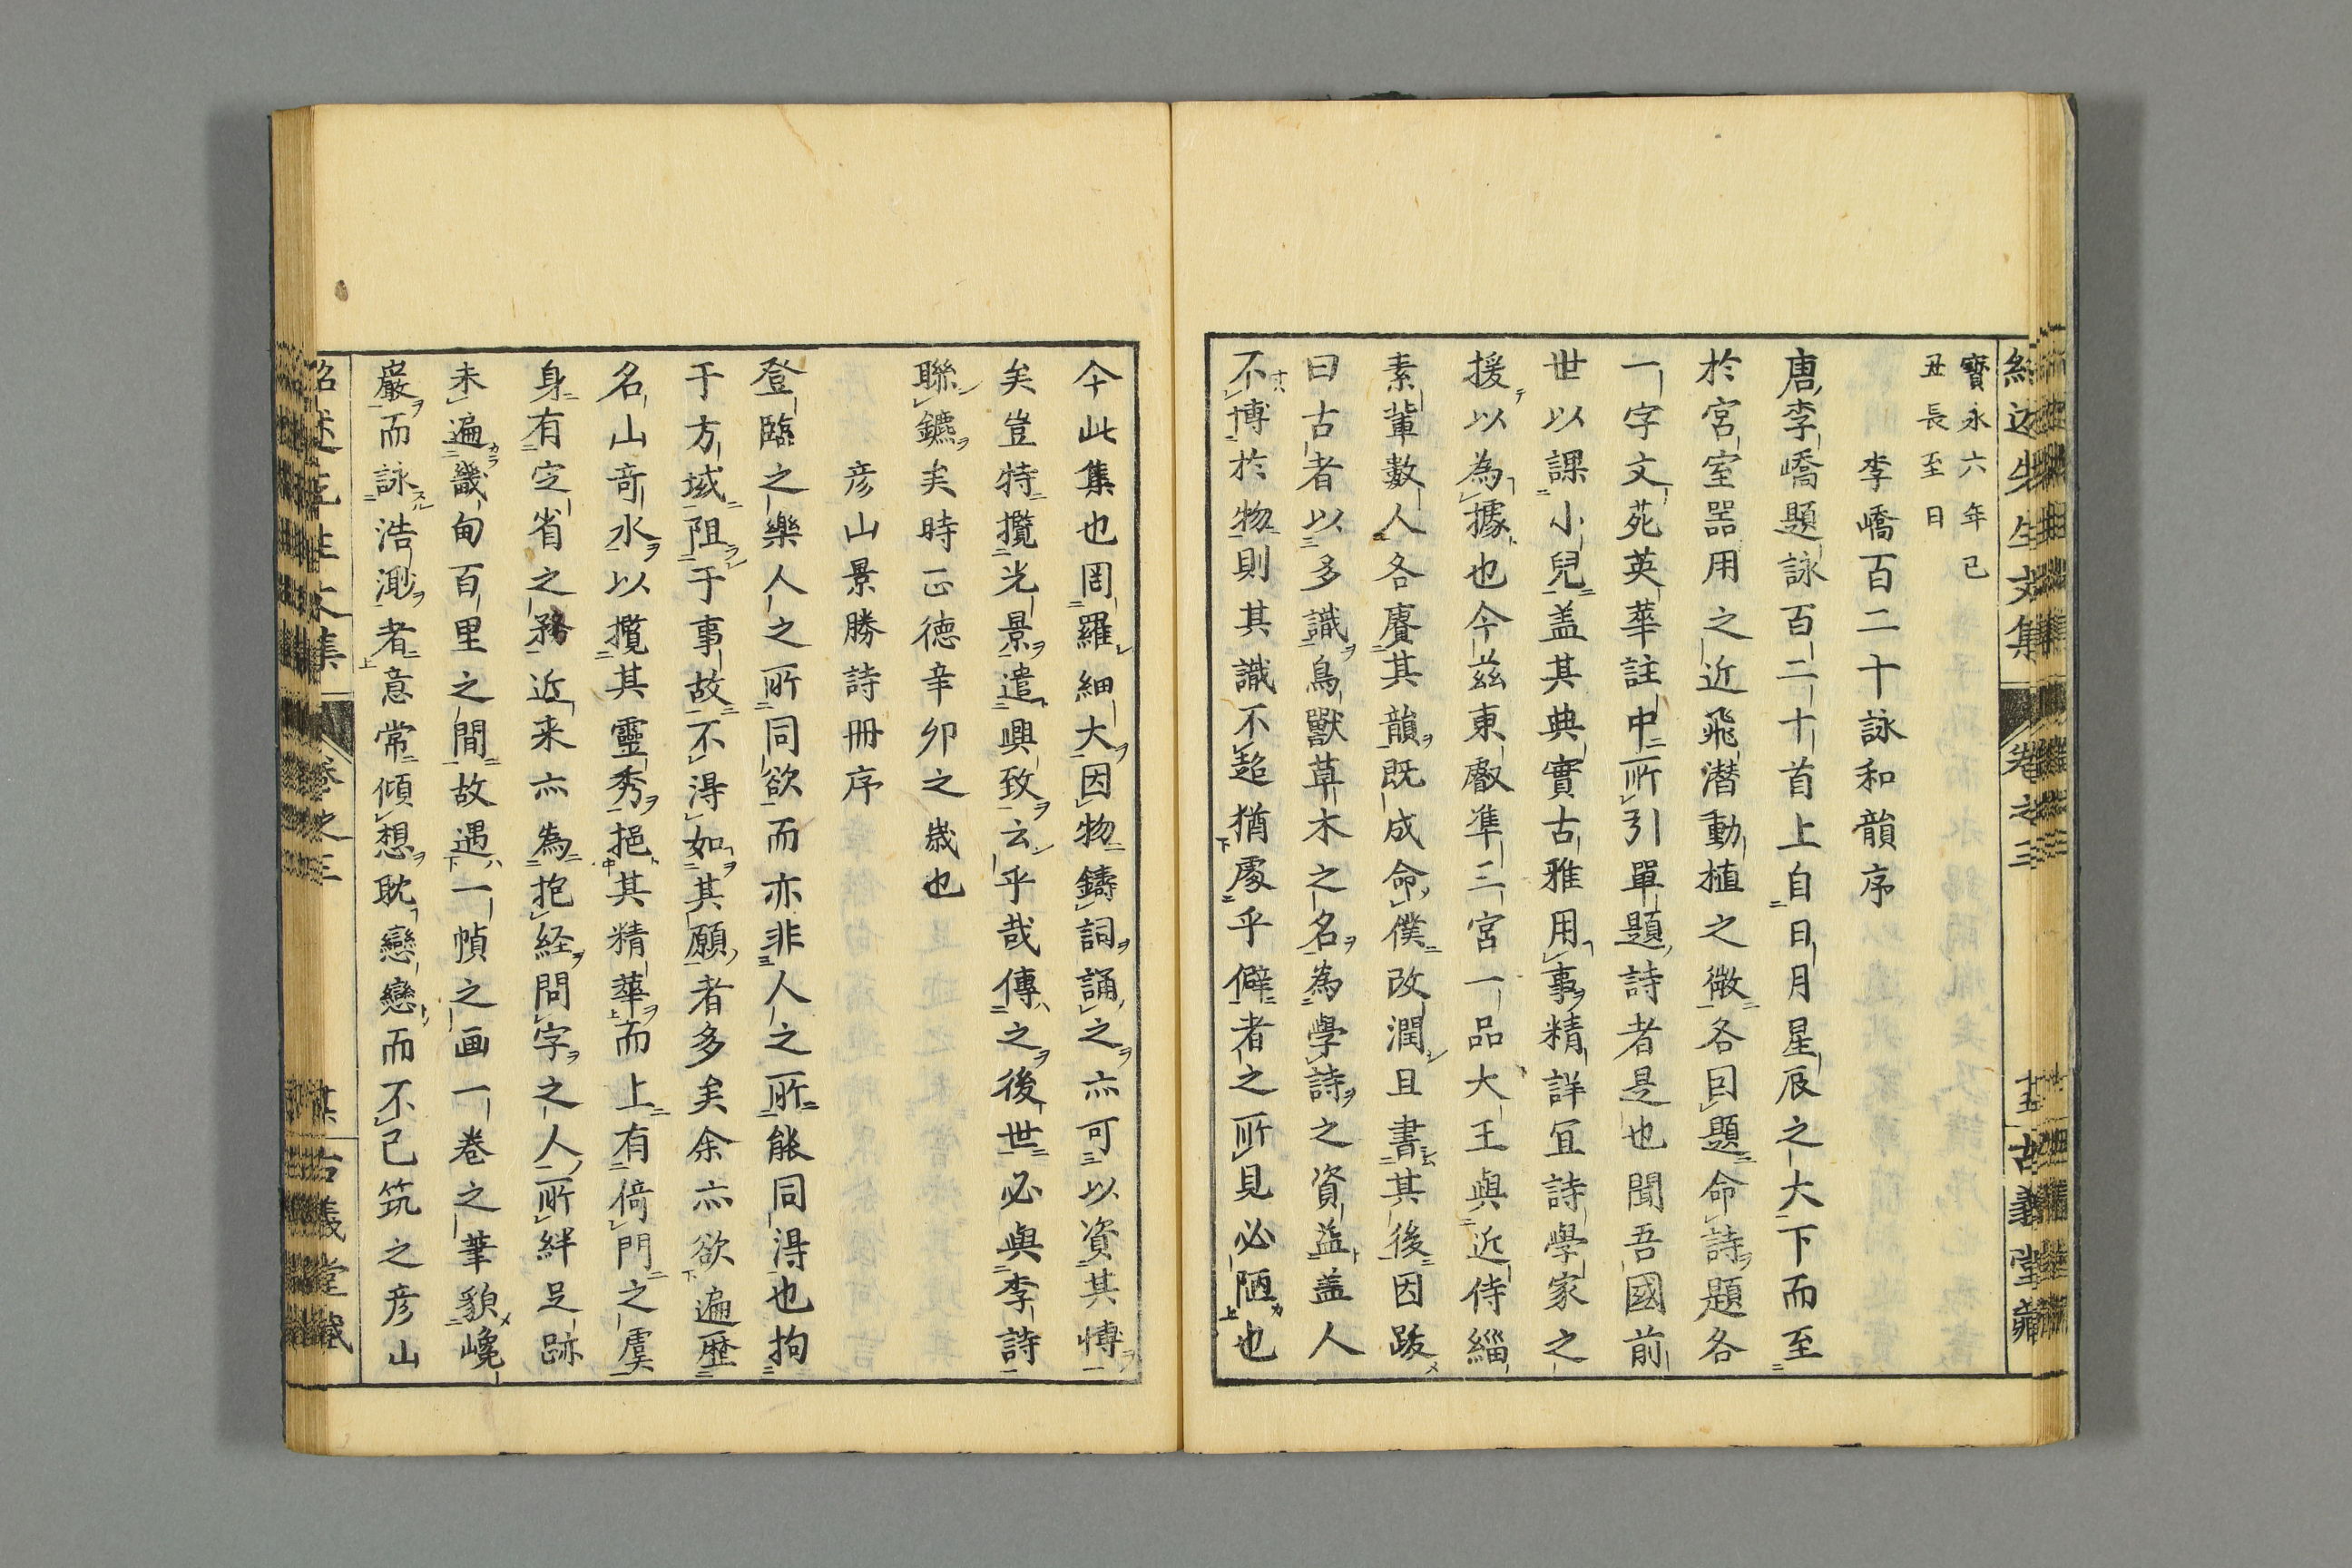 紹述先生文集 卷之三 十五 古義堂藏
寳永六年己
丑長至日
李嶠百二十詠和韻序
唐李嶠題詠百二十首上自日月星辰之大下而至
於宮室噐用之近飛潜動植之微各因題命詩題各
一字文苑英華註中所引單題詩者是也聞吾國前
世以課小兒盖其典實古雅用事精詳宜詩學家之
援以為據也今茲東叡準三宮一品大王與近侍緇
素輩數人各賡其韻既成命僕改潤且書其後因跋
曰古者以多識鳥獸草木之名為學詩之資益盖人
不博於物則其識不超猶處乎僻者之所見必陋也
今此集也罔羅細大因物鑄詞誦之亦可以資其博
矣豈特攬光景遣興致云乎哉傳之後世必與李詩
聯鑣矣時正德辛卯之歳也
彦山景勝詩冊序
登臨之樂人之所同欲而亦非人之所能同得也拘
于方域阻于事故不得如其願者多矣余亦欲遍歴
名山奇水以攬其靈秀挹其精華而上有倚門之虞
身有定省之務近来亦為抱経問字之人所絆足跡
未遍畿甸百里之間故遇一幀之画一巻之筆貌巉
巖而詠浩渺者意常傾想耽戀戀而不已筑之彦山
紹述先生文集 卷之三 古義堂藏